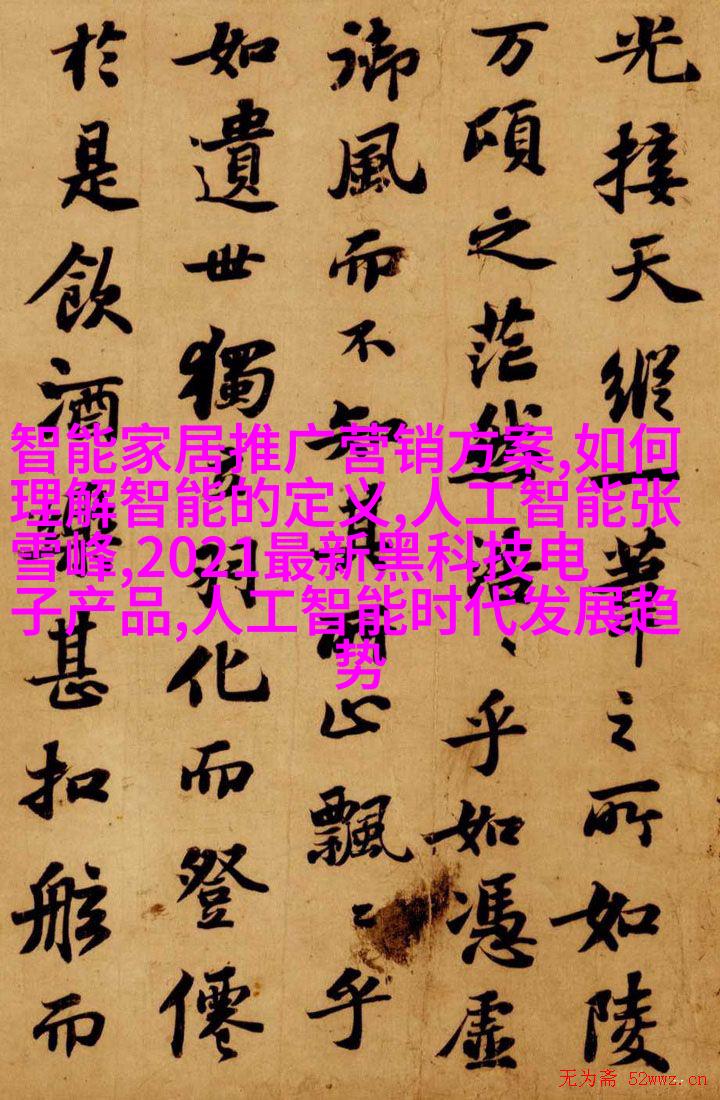 光接天縱一葦之所如陵
万頃之茫然浩〻乎如憑虛
御風而不知其所止飄〻乎
如遺世獨立羽化而登僊
於是飲酒樂甚扣舷而
智能家居推广营销方案,如何
理解智能的定义,人工智能张
雪峰,2021最新黑科技电
子产品,人工智能时代发展趋
势
无为斋 52wwz.cn